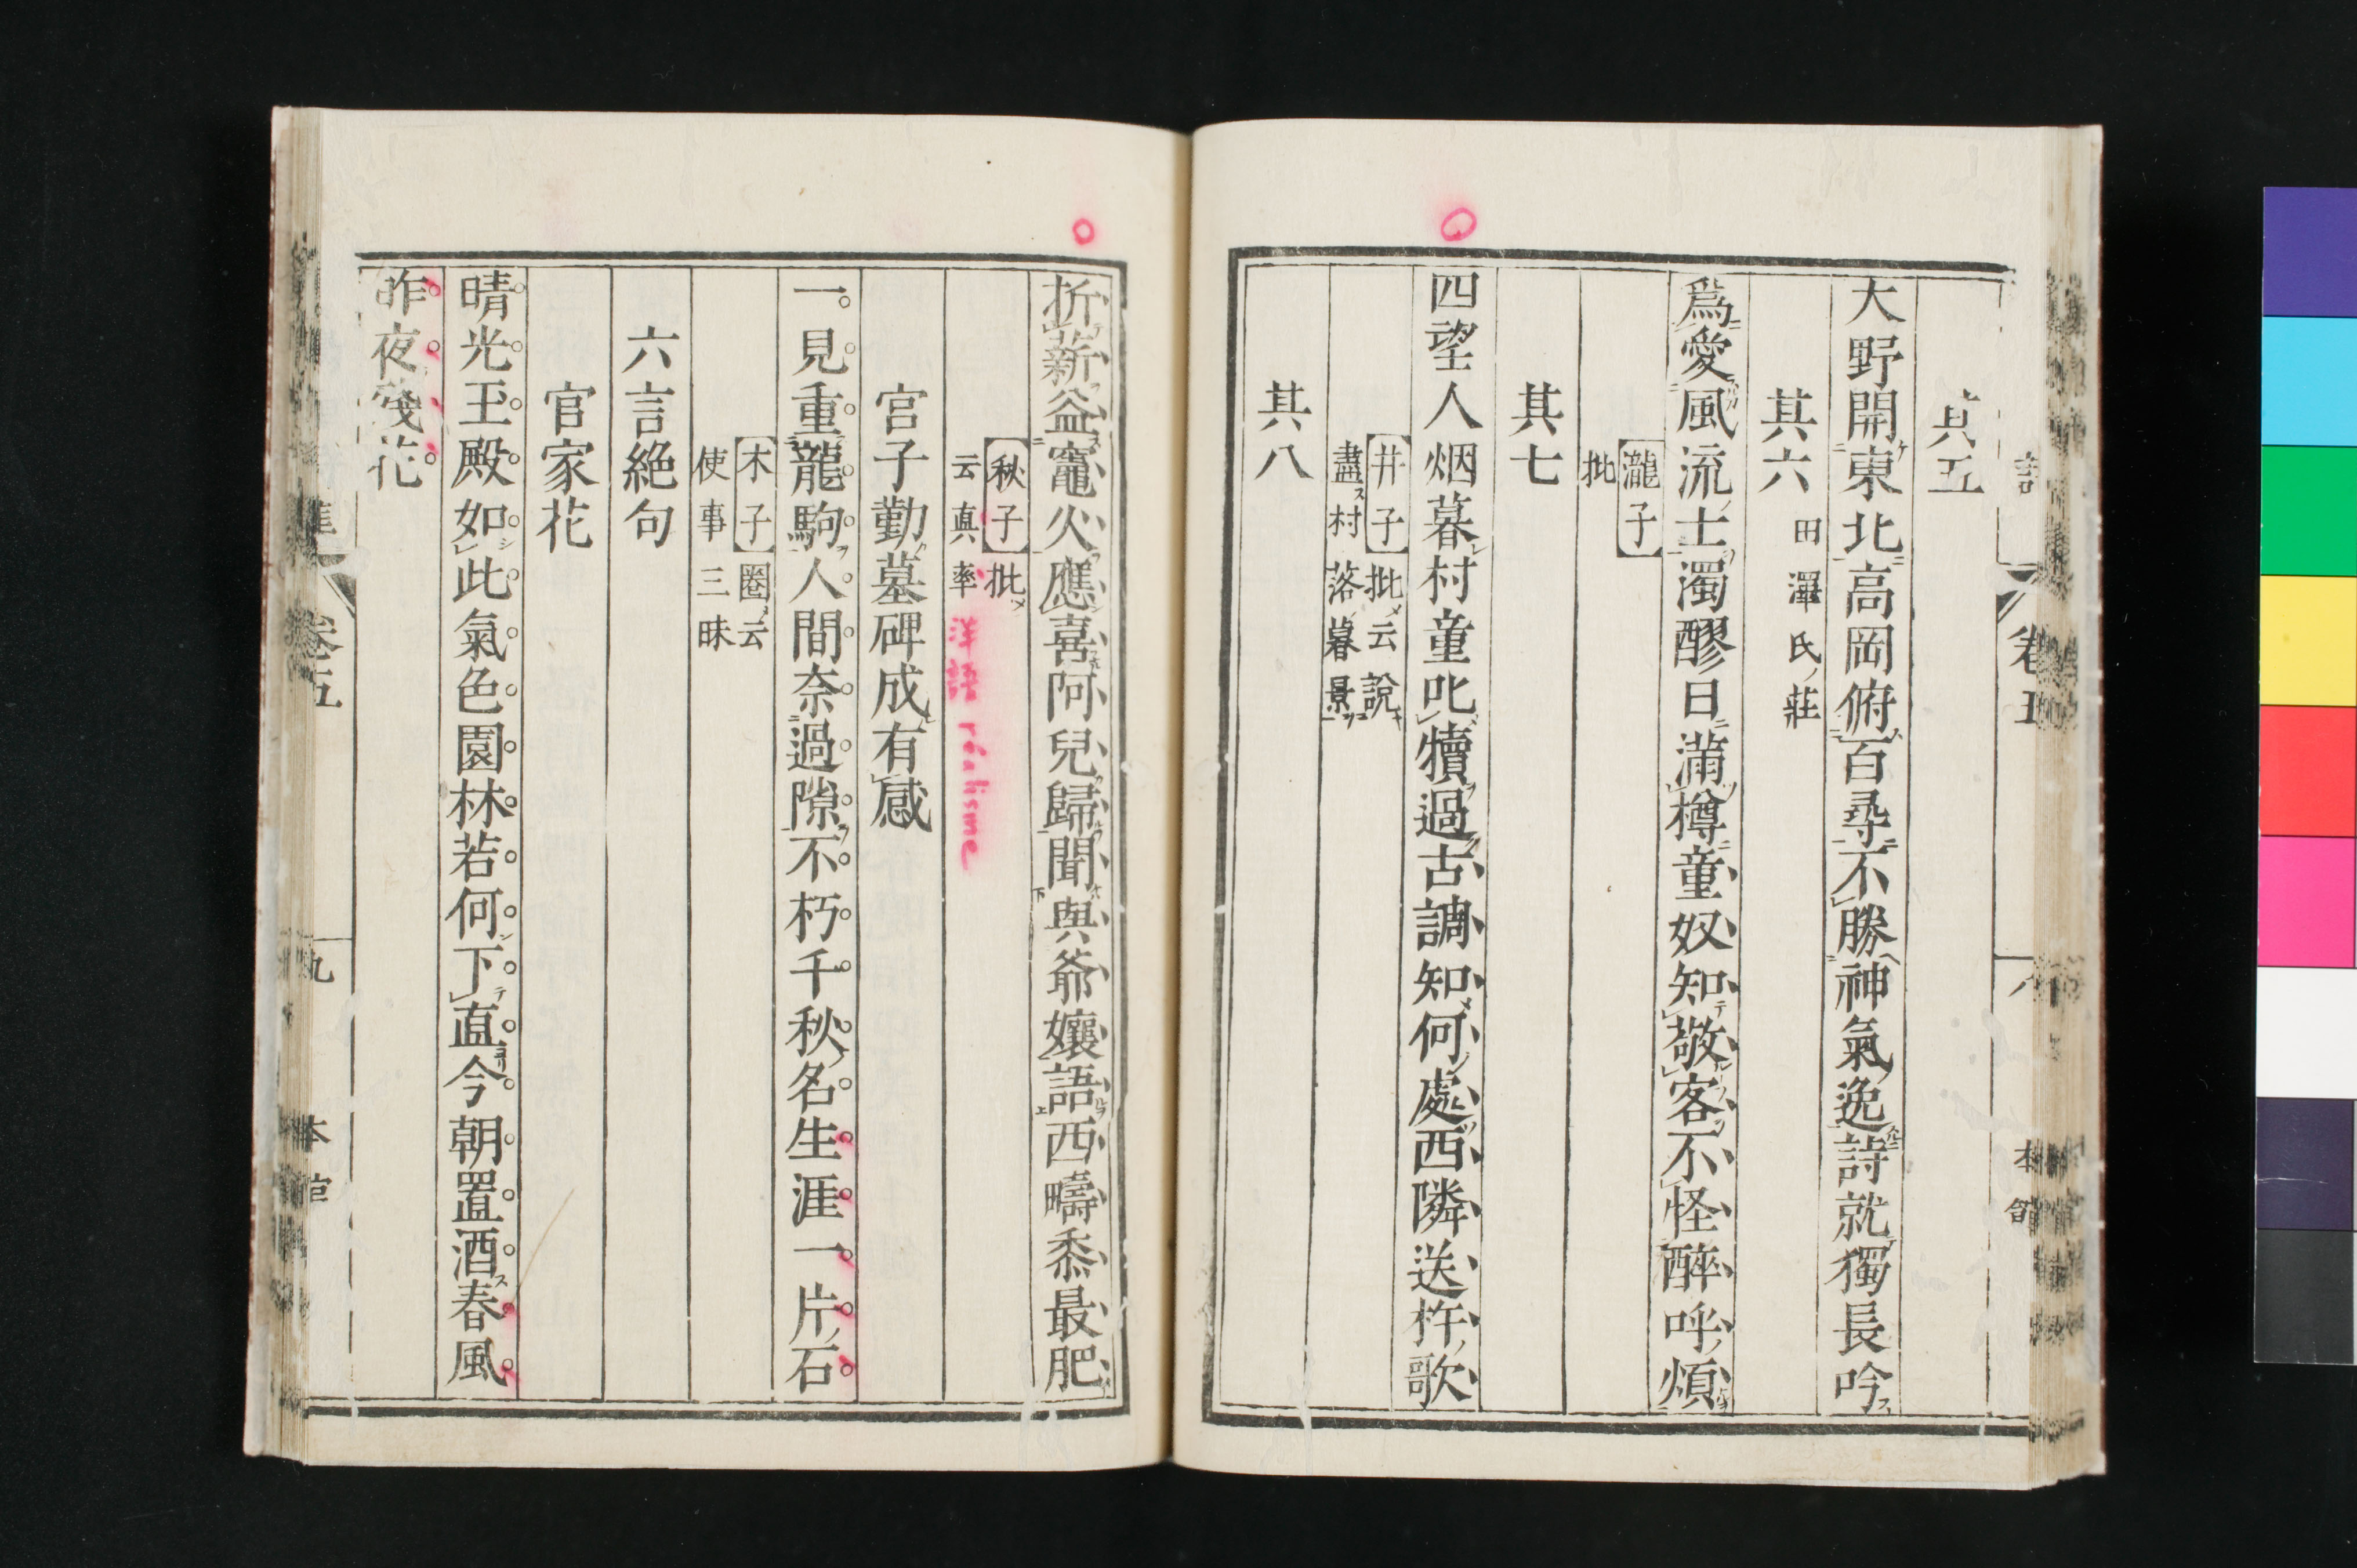 其五
大野開東北高岡俯百尋不勝神氣逸詩就獨長吟
其六 田澤氏ノ莊
爲愛風流士濁醪日滿樽童奴知敬客不怪醉呼煩
瀧子
批
其七
四望人烟暮村童叱犢過古調知何處西隣送杵歌
井子批メ云説
盡ス村落暮景ヲ
其八
卷五
折薪益竈火應喜阿兒歸聞與爺孃語西疇黍最肥
秋子批メ
云真率
洋語 réalisme
宮子勤墓碑成有感
一見重龍駒人間奈過隙不朽千秋名生涯一片石
木子圈メ云
使事三昧
六言絶句
官家花
晴光玉殿如此氣色園林若何下直今朝置酒春風
昨夜殘花
卷五
九